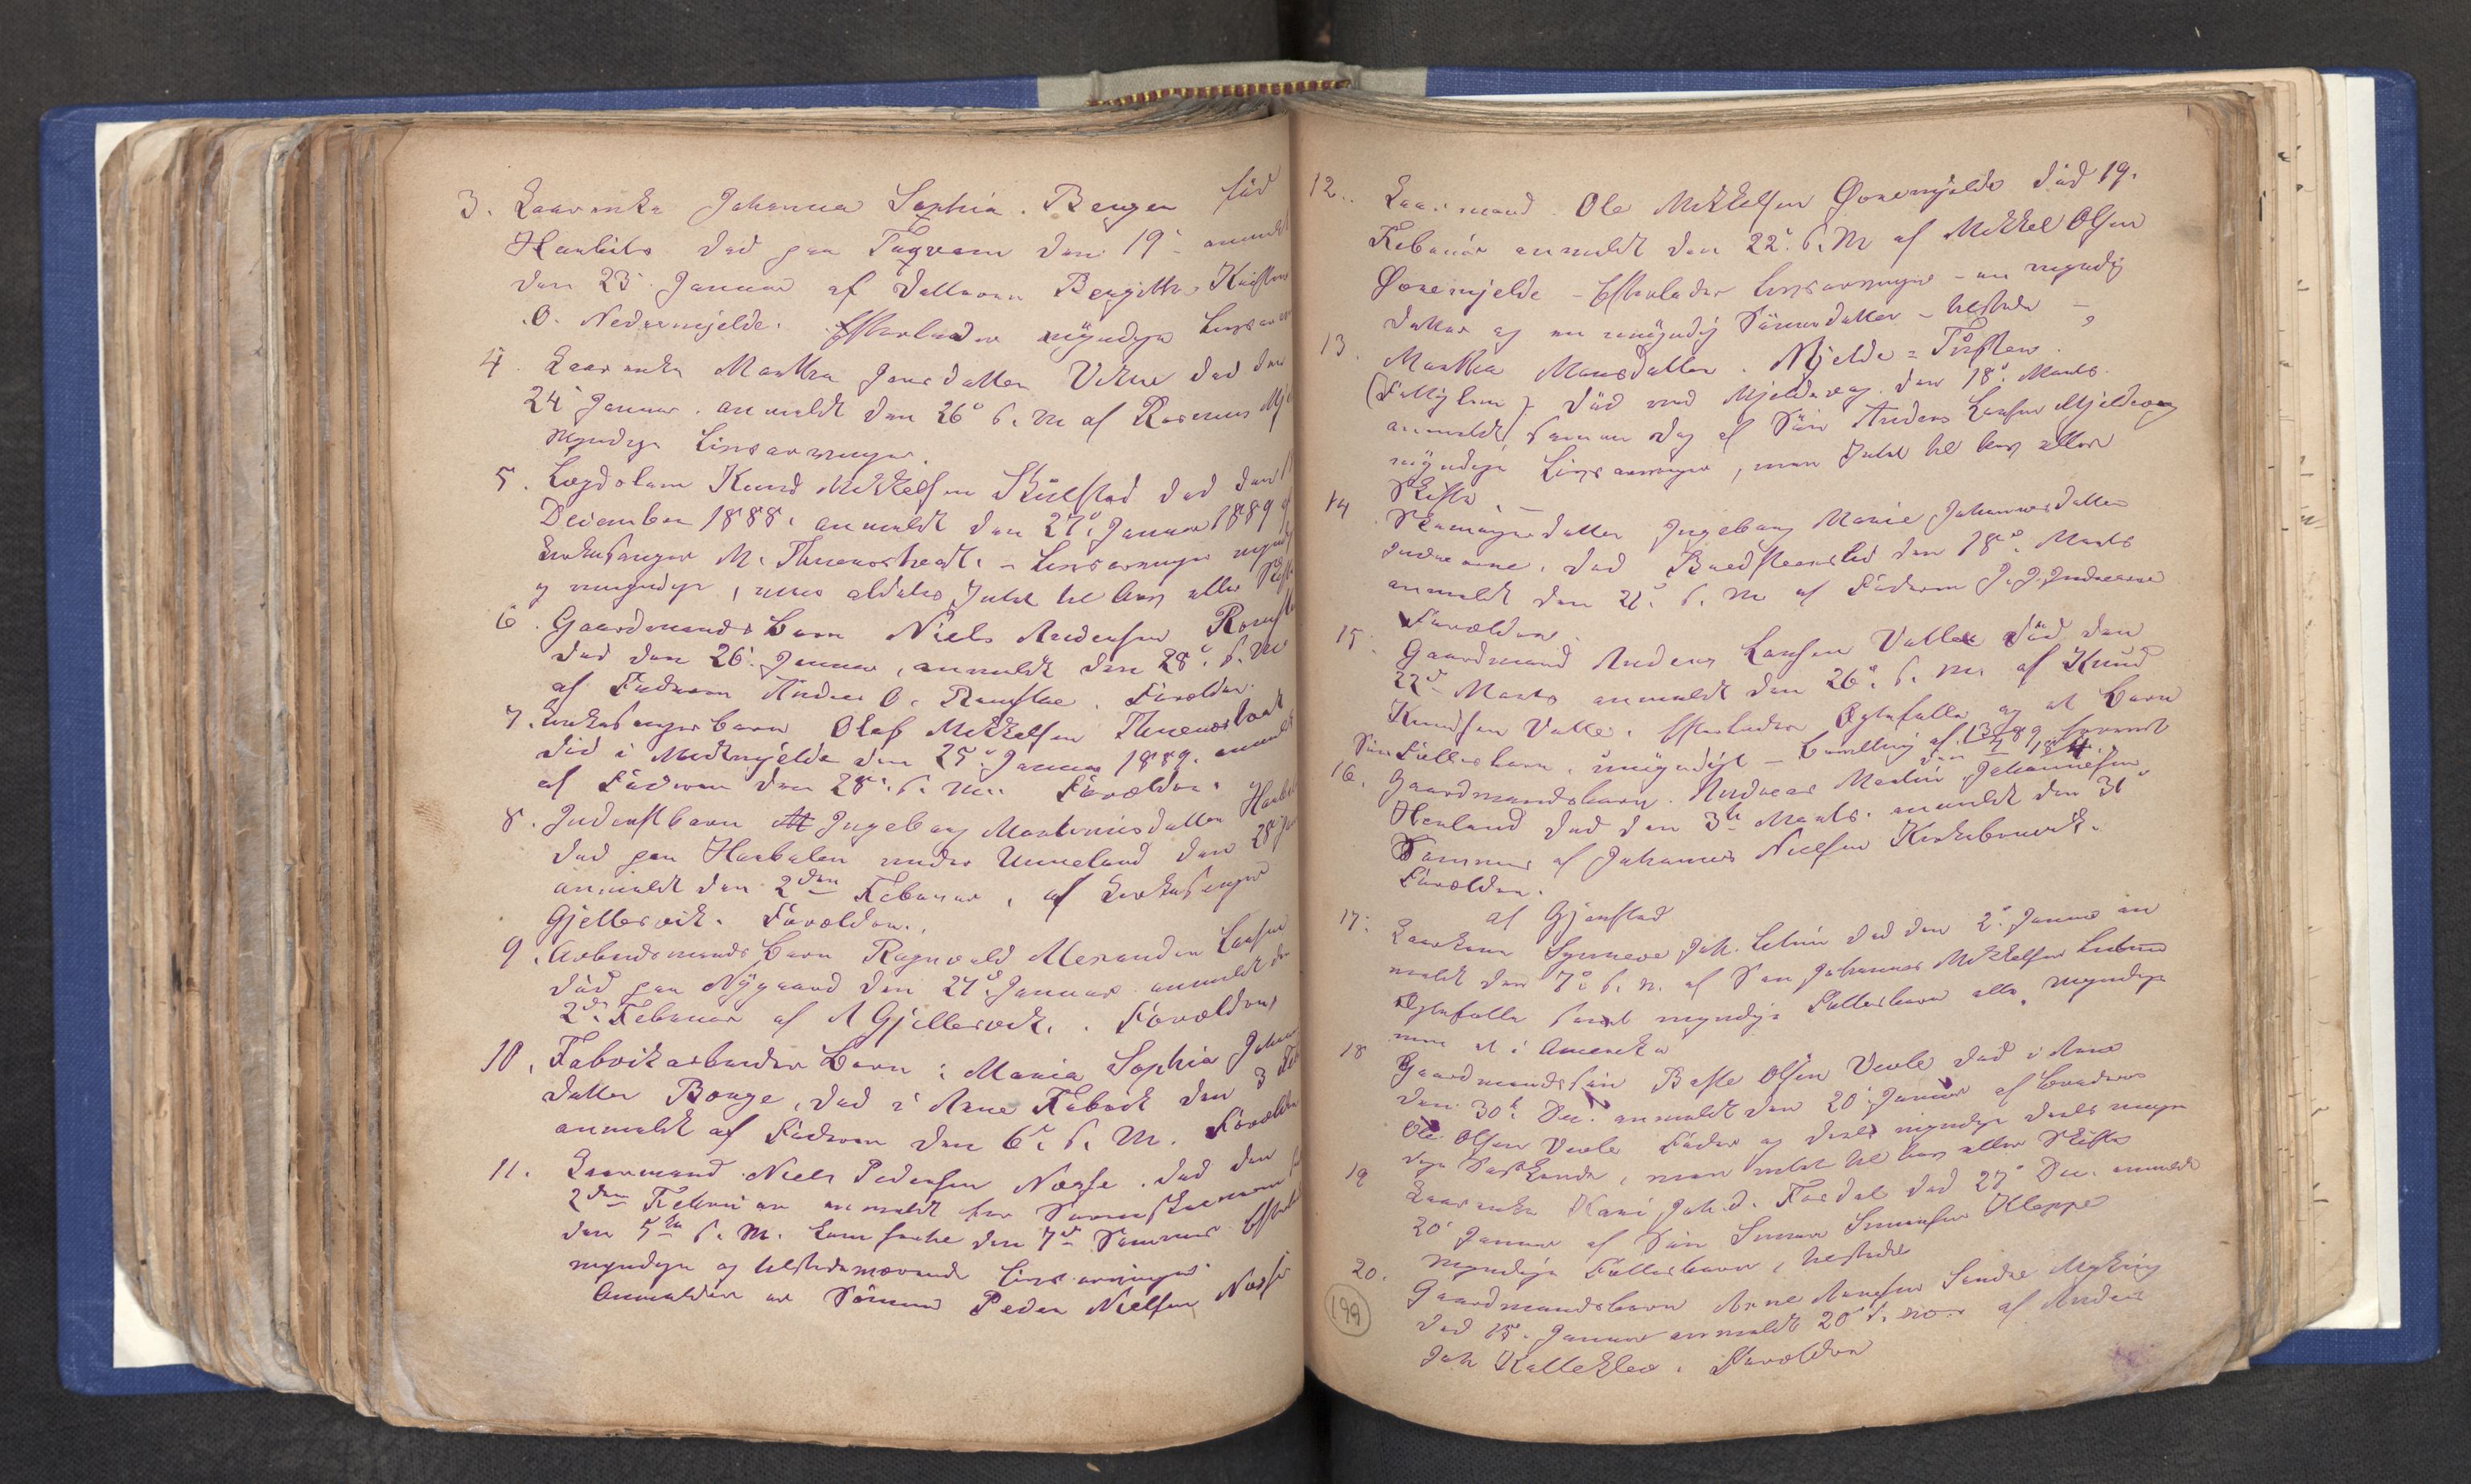 3. Kaarenke Johanna Sophia Berger fød
Haukås død paa Tagvam den 19de anmeldt
den 23 Januar af Datteren Bergitte Kristens
O. Nedremjelde. Efterlader myndige Livsarv
4. Kaarenke Martha Jonsdatter Vikne død den
24 Januar. anmeldt den 26de s. M af Rasmus Mje
Myndige Livsarvinger.
5. Lægdslem Knud Mikkelsen Skulstad død den
December 1888. anmeldt den 27de Januar 1889 af
Kirkesanger M. Thunestvedt. - Livsarvinger myndige
og umyndige, men aldeles Intet til hverken eller Skifte
6. Gaardmands barn Niels Andersen
død den 26. Januar, anmeldt den 28de s. M
af Faderen Anders O. Forældre.
7. Kirkesangerbarn Olaf Mikkelsen Thunestvedt
død i Midtmjelde den 25de Januar 1889. anmeldt
af Faderen den 28de s. M. Forældre.
8. Inderstbarn Ingeborg Martinusdatter
død paa Haukalen under Unneland den 28de Jan
anmeldt den 2den Februar, af Kirkesanger
Gjellesvik. Forældre.
9. Arbeidsmands Barn Ragnvald Alexander Larsen
død paa Nygaard den 24de Januar anmeldt den
2de Februar af A Gjellesvik. Forældre
10. Fabrikarbeider Barn: Maria Sophia Johan
datter Borge, død i Arne Fabrik den 3 Feb
anmeldt af Faderen den 6te s. M. Forældre
11. Kaarmand Niels Pedersen Næsse. død den
2den Februar anmeldt for
den 5te s. M. den 7de Sammes Efterlader
myndige og tilstedeværende Livsarvinger
Anmelder er Sønnen Peder Nielsen Næsse
12. Kaarmand Ole Mikkelsen Øvremjelde død 19.
Februar anmeldt den 22de s. M af Mikkel Olsen
Øvremjelde - Efterlader Livsarvinger - en myndig
datter og en umyndig Sønnedatter - tilstede -
13. Martha Monsdatter. Mjelde =
(Fattiglem) død ved Mjeldevaag den 18de Marts
anmeldt samme dag af Søn Anders Larsen Mjeldevaag
myndige Livsarvinger, men Intet til hverken eller
Skifte -
14. datter Ingeborg Marie Johannesdatter
Indrearne. død den 18de Marts
anmeldt den 21de s. M af Faderen J. J. Indrearne
Forældre.
15. Gaardmand Anders Larsen Valle død den
22de Marts anmeldt den 26de s. M. af Knud
Knudsen Valle. Efterlader Ægtefælle og et Barn
Fællesbarn, umyndigt - Bevilling af
16. Gaardmandsbarn. Andreas Martin Johannesen
Herland død den 3de Marts. anmeldt den 31
Sammes af Johannes Nielsen Kirkebruvik.
Forældre.
af Gjerstad
17. Kaarkone Synneve Joh. død den 2de Januar an
meldt den 7de s. M. af Søn Johannes Mikkelsen
Ægtefælle samt myndige Fællesbarn alle myndige
men et i Amerika
18 Gaardmandssøn Baste Olsen Vevle død i Arne
den 30te Dec. anmeldt den 20 Januar af Broderen
Ole Olsen Vevle Fader og dels myndige dels umyn
dige Søskende, men intet til hverken eller Skifte
19 Kaarenke Kari Joh.d. Fosdal død 27de Dec. anmeldt
20 Januar af Søn Simon Simonsen Kleppe
Myndige Fællesbarn, tilstede
20. Gaardmandsbarn Arne Arnesen Søndre Myking
død 15. Januar anmeldt 20 s. M. af Anders
Joh Kalleklev. Forældre
199